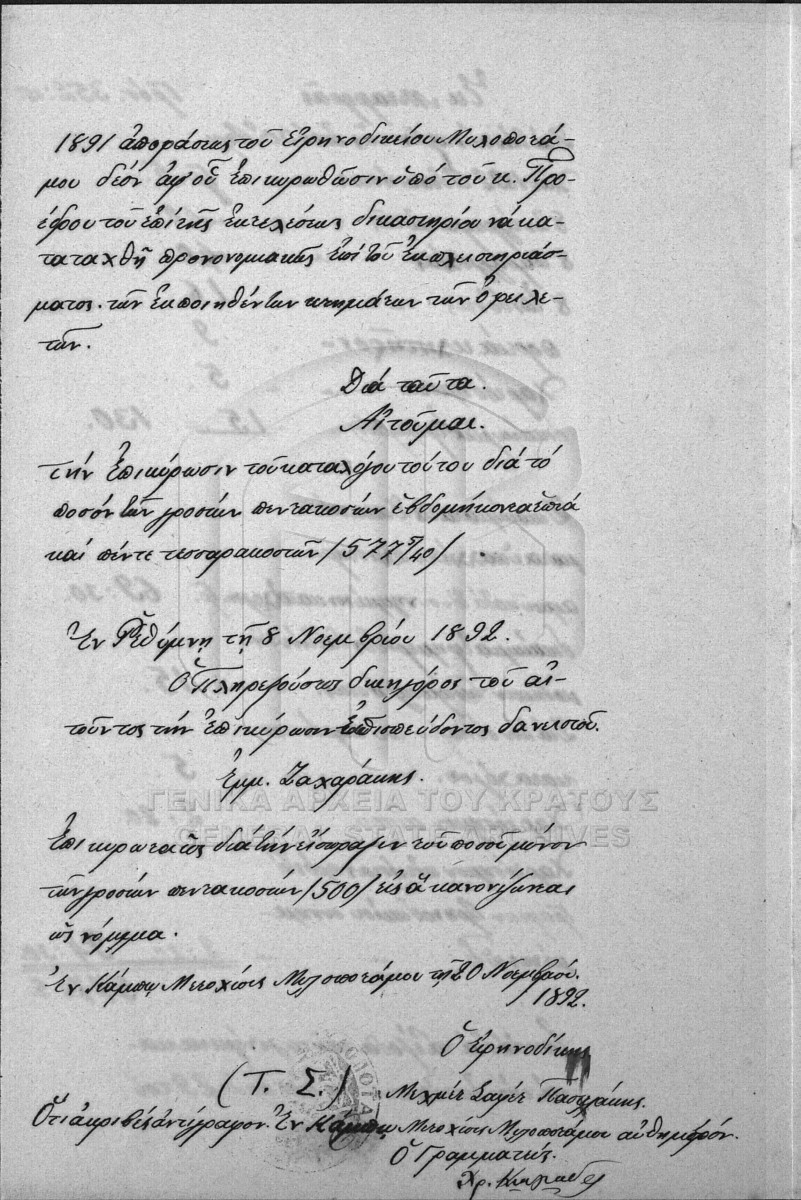 1891 ἀποφάσεως τοῦ Εἰρηνοδικείου Μυλοποτά-
μου δέον ἀφ' οὗ ἐπικυρωθῶσιν ὑπὸ τοῦ κ. Προ-
έδρου τοῦ ἐπὶ τῆς ἐκτελέσεως δικαστηρίου νὰ κα-
ταταχθῆ προνομιακῶς ἐπὶ τοῦ ἐκπλειστηριάσ-
ματος τῶν ἐκποιηθέντων κτημάτων τῶν ὀφειλε-
τῶν.
Διὰ ταῦτα.
Αἰτοῦμαι.
τὴν ἐπικύρωσιν τοῦ καταλόγου τούτου διὰ τὸ
ποσὸν τῶν γροσίων πεντακοσίων ἑβδομήκοντα ἑπτὰ
καὶ πέντε τεσσαρακοστῶν /577 5/40/ .
Ἐν Ρεθύμνῃ τῇ 8 Νοεμβρίου 1892.
Ὁ Πληρεξούσιος δικηγόρος τοῦ αἰ-
τοῦντος τὴν ἐπικύρωσιν ἐπισπεύδοντος δανειστοῦ.
Ἐμμ. Ζαχαράκης.
ΓΕΝΙΚΑ ΑΡΧΕΙΑ ΤΟΥ ΚΡΑΤΟΥΣ
GENERAL STATE ARCHIVES
Ἐπικυροῦται ὡς διὰ τὴν εἴσπραξιν τοῦ ποσοῦ μόνον
τῶν γροσίων πεντακοσίων /500/ εἰς ἃ κανονίζονται
ὡς νόμιμα.
Ἐν Κάμπῳ Μετοχίοις Μυλοποτάμου τῇ 20 Νοεμβρίου
1892.
Ὁ Εἰρηνοδίκης
(Τ. Σ.) Μεχμὲτ
Ὅτι ἀκριβὲς ἀντίγραφον. Ἐν Κάμπῳ Μετοχίοις Μυλοποτάμου αὐθημερόν.
Ὁ Γραμματεύς.
Χρ.